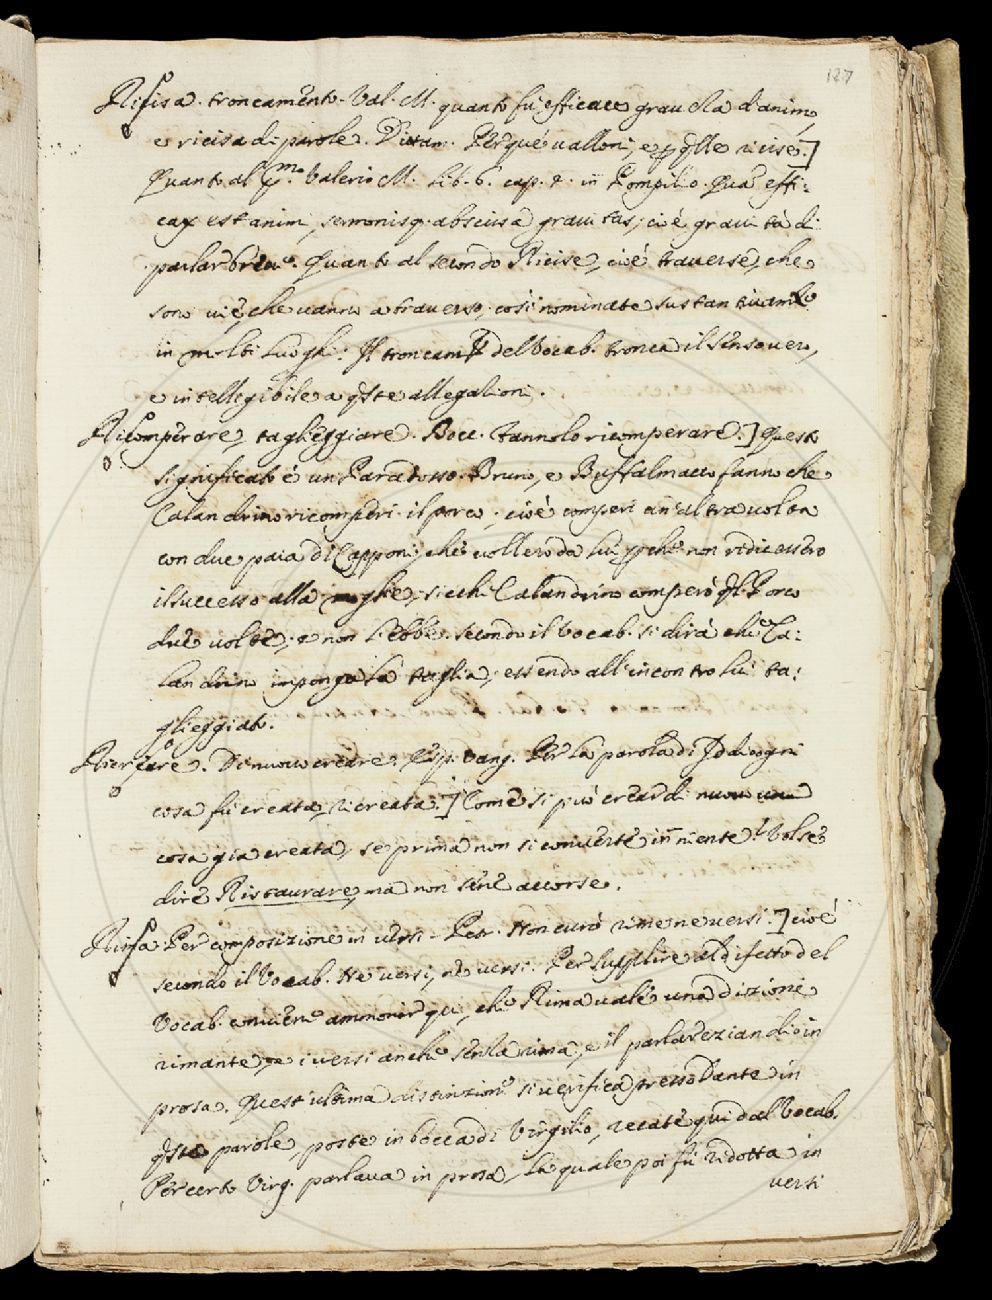 127
Ricisa. troncamento. Val. M. quanto fù efficace gravità d'animo,
e ricisa di parole. Dittam. Per què valloni, e p q̃lle ricise.]
Quanto al p.mo Valerio M. Lib. 6. cap. 4. in Pompilio. Quã effi-
cax est animi, sermonisq. abscissa gravitas; cioè gravità di
parlar breve. Quanto al secondo Ricise, cioè traverse, che
sono vie, che vanno a traverso, così nominate sustantivamte
in molti luoghi. Il troncamto del Vocab. tronca il senso vero,
e intellegibile a q̃ste allegazioni.
Ricomperare, taglieggiare. Bocc. fannolo ricomperare.] Questo
significato è un Paradosso. Bruno, e Buffalmacco fanno che
Calandrino ricomperi il porco, cioè comperi un'altra volta
con due paia di Capponi, che vollero da lui ppchè non ridicessero
il successo alla moglie, sicchè Calandrino comperò q̃l Porco
due volte, e non l'ebbe. secondo il Vocab. si dirà che Ca-
landrino imponga la taglia, essendo all'incontro lui ta-
glieggiato.
Ricreare. Di nuovo creare. Esp. Vang. Per la parola di Iddio ogni
cosa fù creata, ricreata.] Come si può crear di nuovo una
cosa già creata, se prima non si converte in niente? Volse
dire Ristaurare, ma non sene accorse.
Rima. Per composizione in versi. Petr. Non curò rime ne versi.] cioè
secondo il Vocab. Ne versi, ne versi. Per supplire al difetto del
Vocab. conviene ammonir qui, che Rima vale una dizione
rimante, e i versi anche senza rima, e il parlare eziandio in
prosa. Quest'ultima distinzione si verifica presso Dante in
q̃ste parole, poste in bocca di Virgilio, recate qui dal Vocab.
Per certo Virg. parlava in prosa, la quale poi fù ridotta in
versi